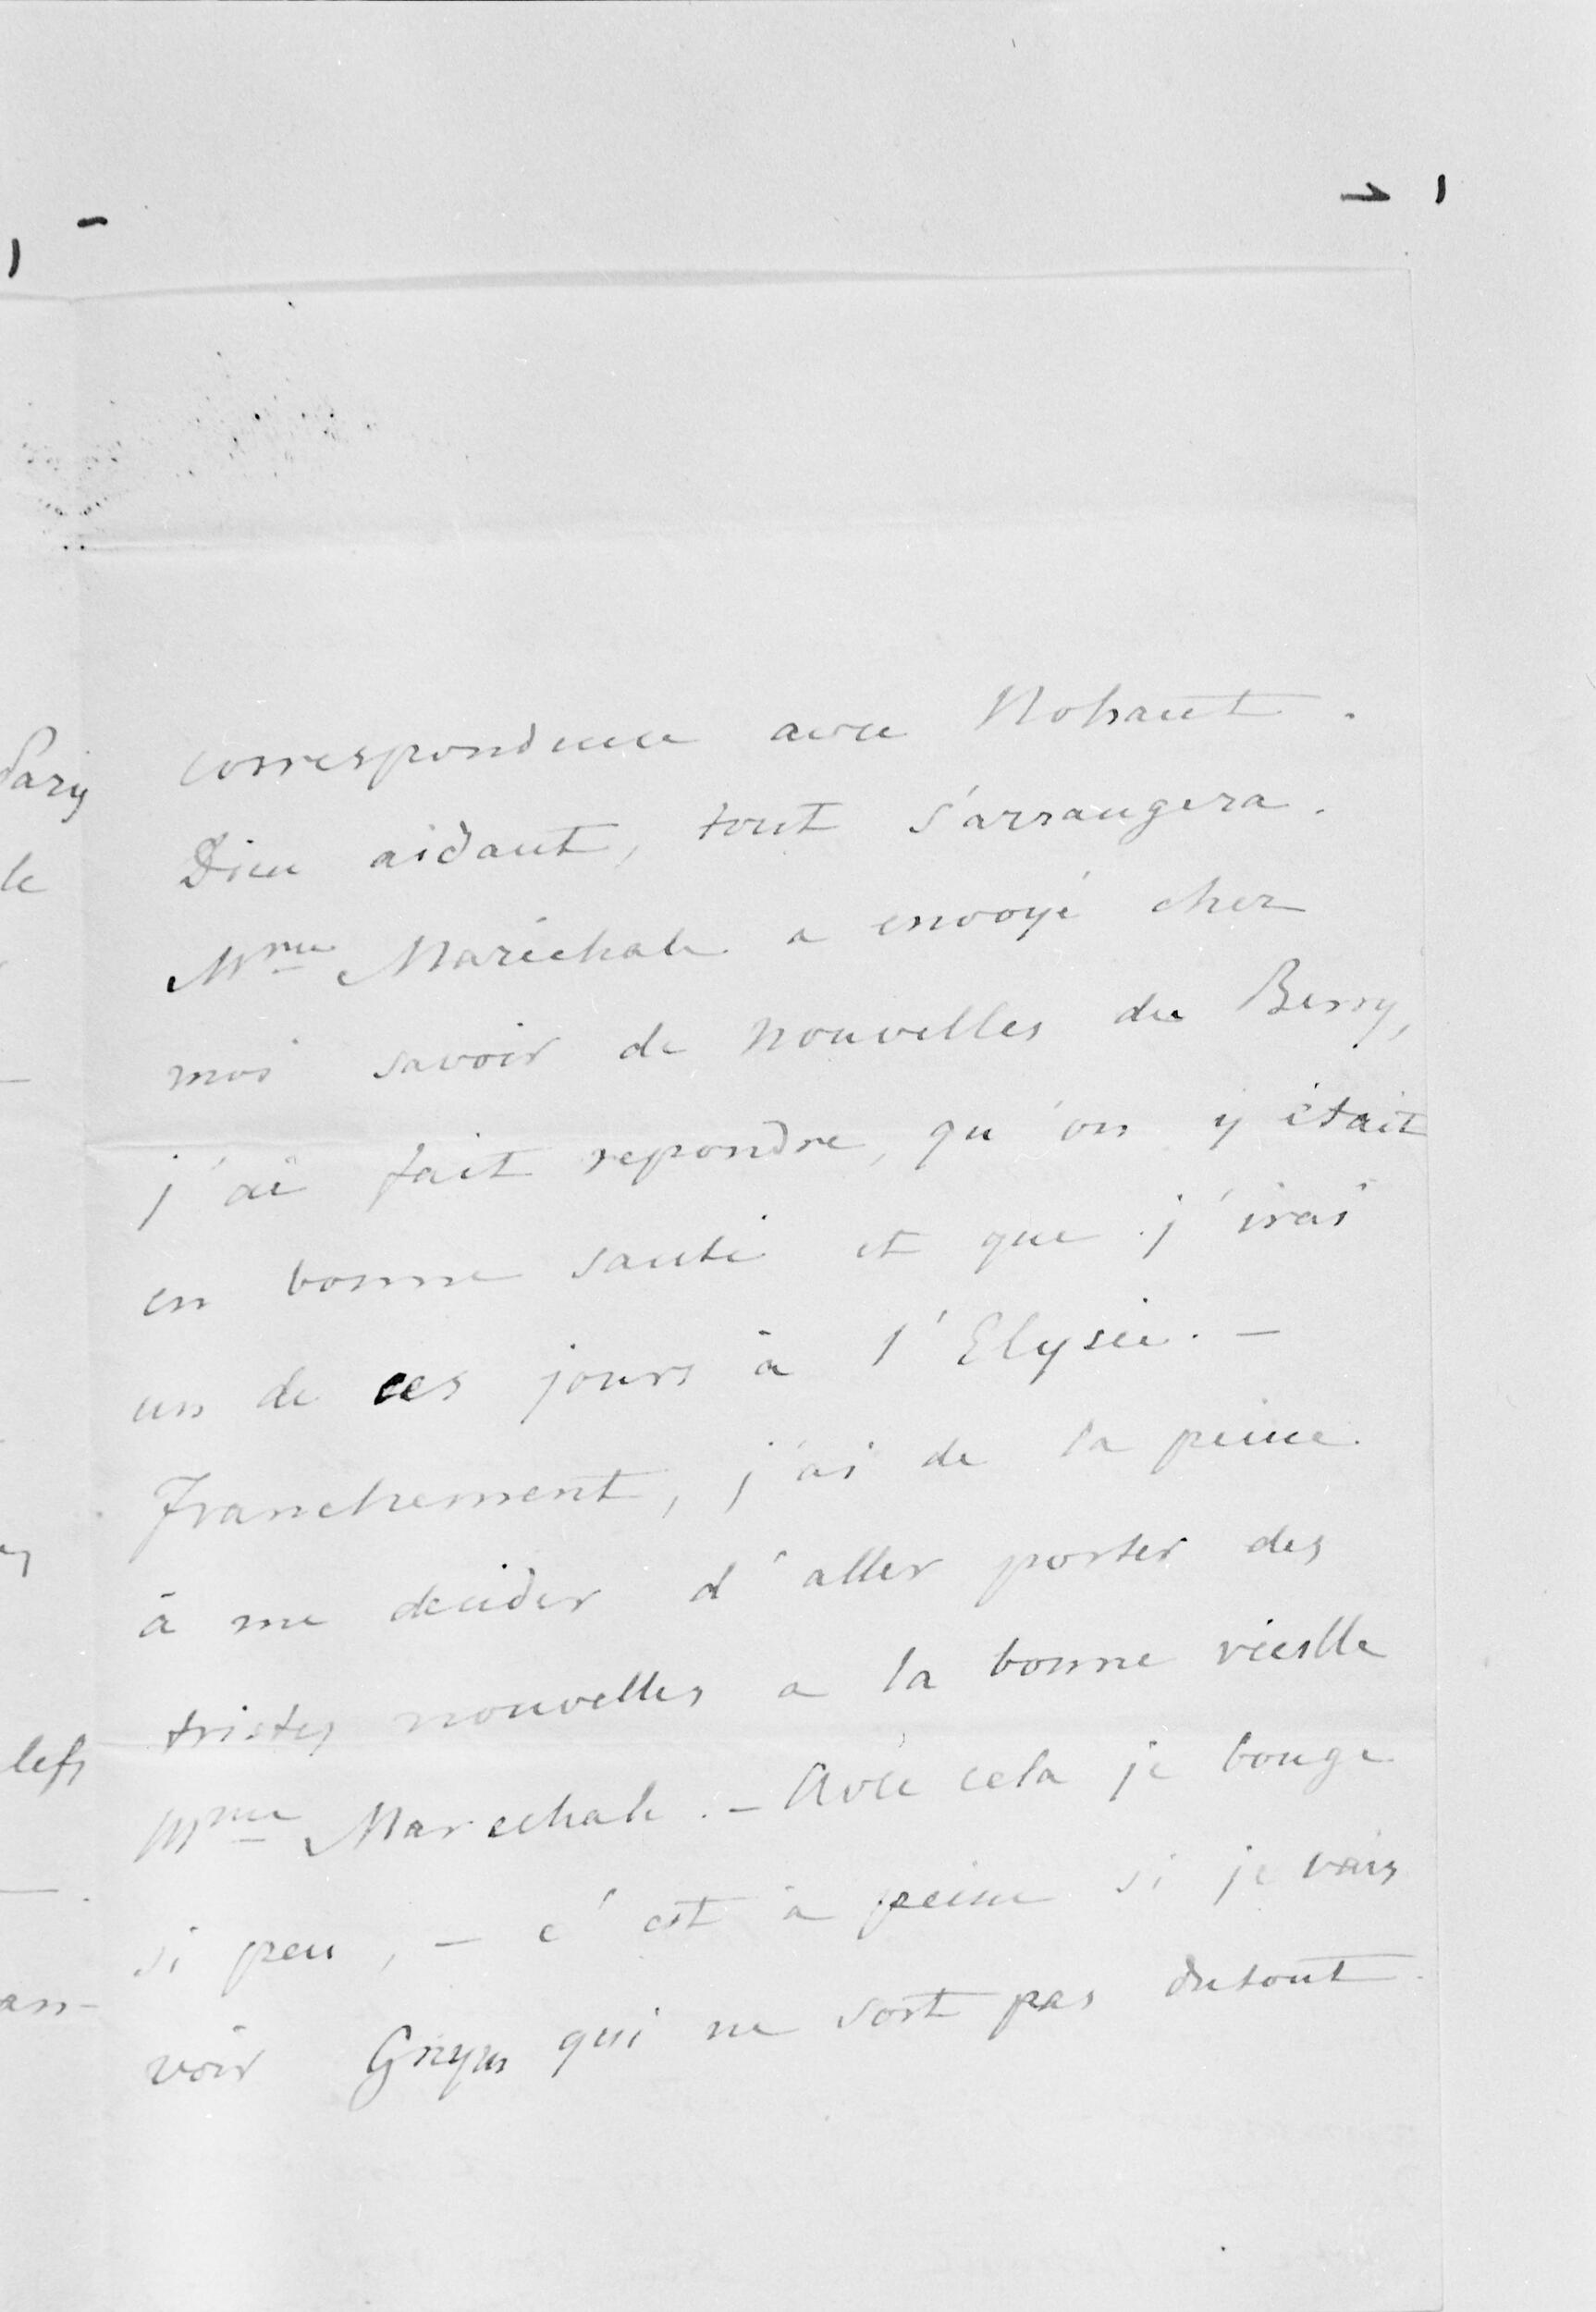 correspondence avec Nohant.
Dieu aidant, tout s'arrangera.
Mme Maréchale a envoyé chez
moi savoir de nouvelles du Berry,
j'ai fait repondre, qu'on y était
en bonne santé et que j'irai
un de ces jours à l'Elysée. –
Franchement, j'ai de la peine
à me decider d'aller porter des
tristes nouvelles a la bonne vieille
Mme Marechale. – Avec cela je bouge
si peu, – c'est à peine si je vais
voir Grzym qui ne sort pas dutout
Paris
le